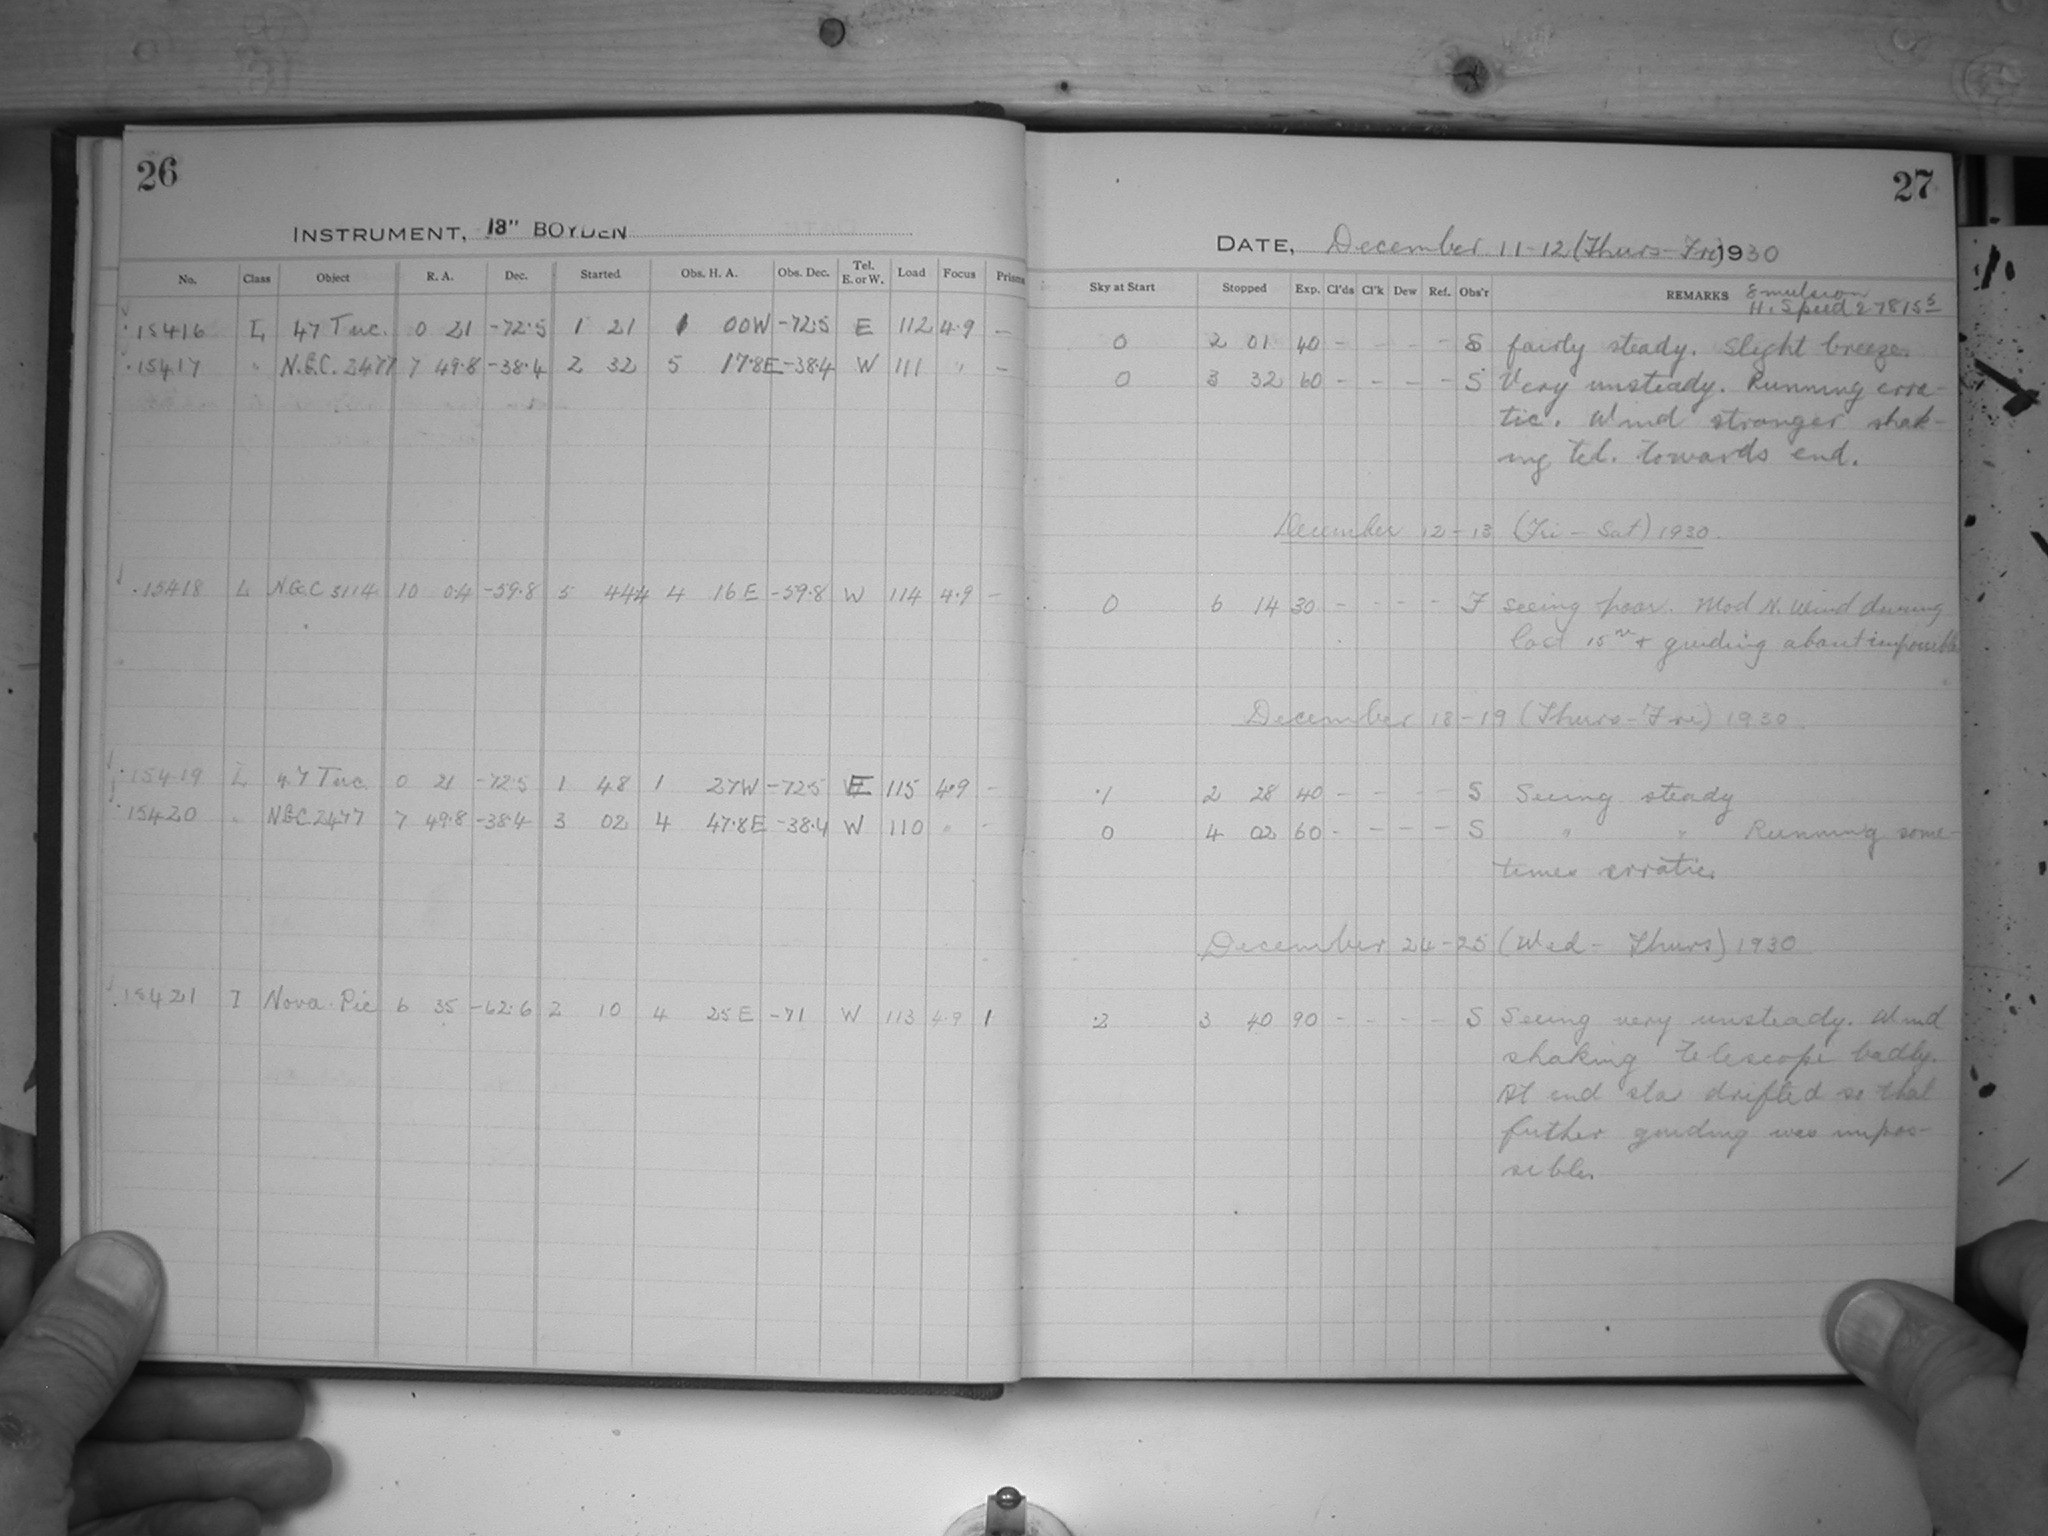 26
INSTRUMENT, 13" BOYDEN
No. Class Object R. A. Dec. Started Obs. H. A. Obs. Dec. Tel. E. or W. Load Focus Prisms
15416 L 47 Tuc. 0 21 -72.5 1 21 1 00W -72.5 E 112 4.9 —
15417 " N.G.C. 2477 7 49.8 -38.4 2 32 5 17.8E -38.4 W 111 " —
15418 L N.G.C 3114 10 0.4 -59.8 5 44 4 16E -59.8 W 114 4.9 —
15419 L 47 Tuc. 0 21 -72.5 1 48 1 27W -72.5 E 115 4.9 -
15420 " NGC 2477 7 49.8 -38.4 3 02 4 47.8E -38.4 W 110 " -
15421 I Nova Pic 6 35 -62.6 2 10 4 25E -71 W 113 4.9 1
27
DATE, December 11-12 (Thurs-Fri) 1930
Sky at Start Stopped Exp. Cl'ds Cl'k Dew Ref. Obs'r REMARKS Emulsion
H. Speed 27815
0 2 01 40 - - - - S fairly steady. Slight breeze.
0 3 32 60 - - - - S Very unsteady. Running erra-
tic. Wind stronger shak-
ing tel. towards end.
December 12-13 (Fri - Sat) 1930.
0 6 14 30 - - - - F seeing poor. Mod N. Wind during
last 15m + guiding about impossible
December 18-19 (Thurs-Fri) 1930
.1 2 28 40 - - - - S Seeing steady
0 4 02 60 - - - - S " " Running some-
times erratic.
December 24-25 (Wed - Thurs) 1930
.2 3 40 90 - - - - S Seeing very unsteady. Wind
shaking telescope badly.
At end star drifted so that
futher guiding was impos-
sible.